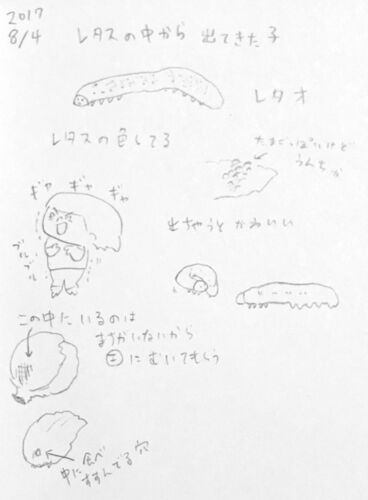 2017
8/4
レタスの中から 出てきた子
レタオ
レタスの色してる
たまごっぽいけど
うんちか
ギャ ギャ ギャ
ブル
ブル
出ちゃうと かわいい
この中に いるのは
まちがいないから
にむいてもらう
食べ
中に すすんでる 穴